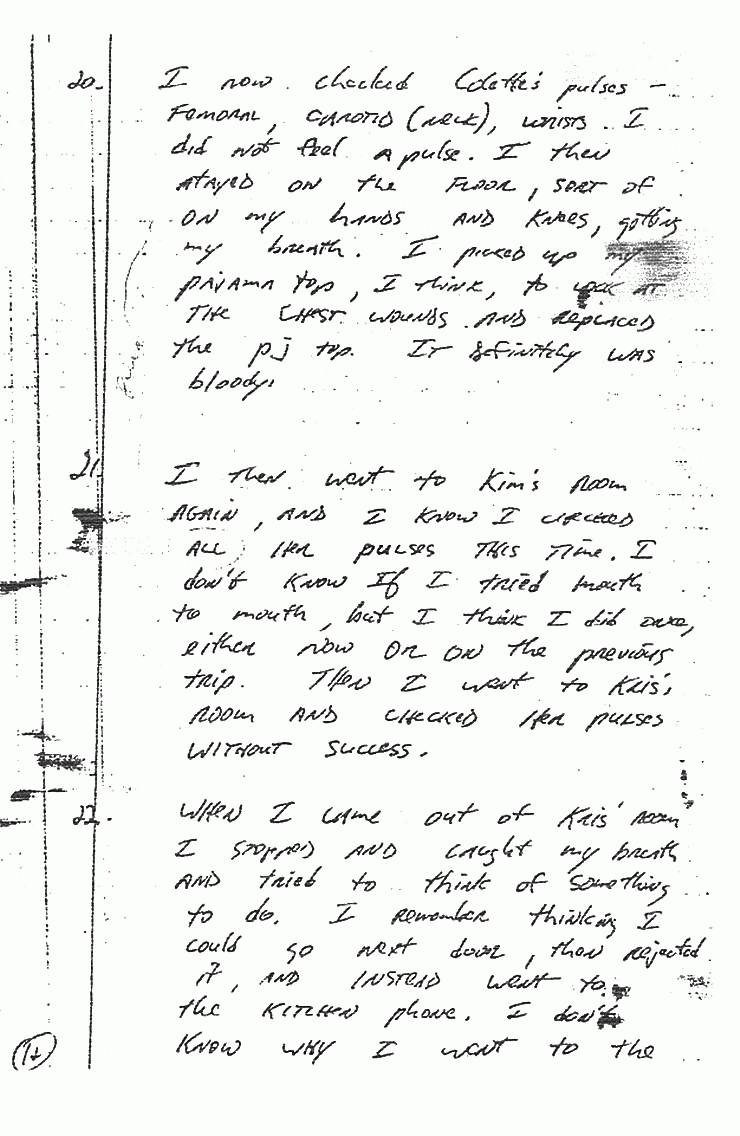 20. I now checked Colette's pulses –
FEMORAL, CAROTID (NECK), WRISTS. I
did not feel A pulse. I then
STAYED ON the FLOOR, SORT OF
ON my HANDS AND KNEES, getting
my breath. I picked up my
pajama top, I think, to LOOK AT
THE CHEST WOUNDS AND REPLACED
the pj top. IT definitely WAS
bloody.
21. I then went to Kim's ROOM
AGAIN, AND I KNOW I CHECKED
ALL HER PULSES THIS TIME. I
don't KNOW If I tried mouth
to mouth, but I think I did once,
either NOW OR ON the previous
trip. THEN I went to Kris'
ROOM AND CHECKED HER PULSES
WITHOUT SUCCESS.
22. WHEN I CAME out of KRIS' ROOM
I STOPPED AND caught my breath
AND tried to think of something
to do. I remember thinking I
could go next door, then rejected
it, AND INSTEAD went to
the KITCHEN phone. I don't
KNOW WHY I went to the